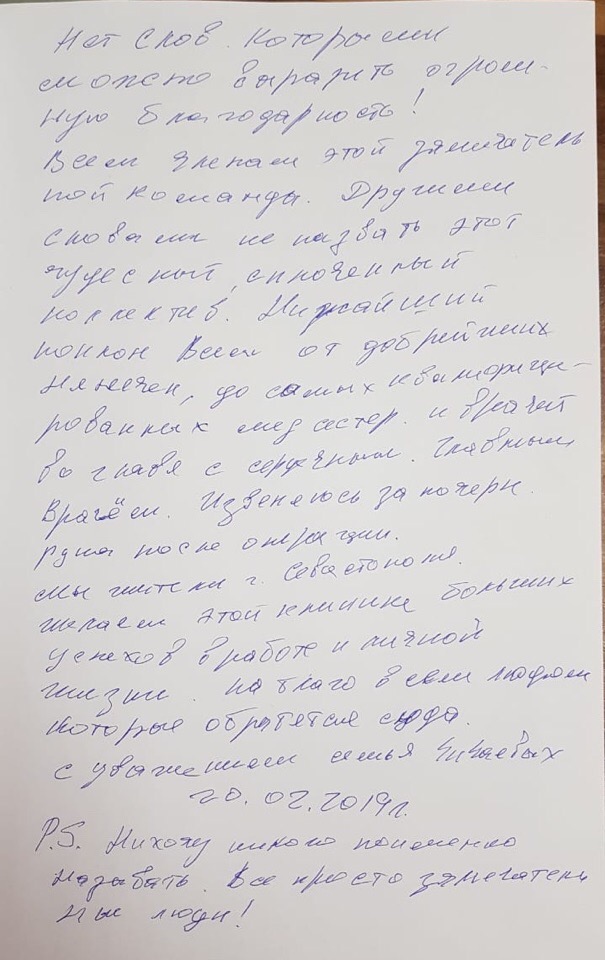 Нет слов. Которыми
можно выразить огром-
ную благодарность!
Всем членам этой замечатель
ной команды. Другими
словами не назвать этот
чудесный, сплоченный
коллектив. Нижайший
поклон Всем от добрейших
нянечек, до самых квалифици-
рованных мед сестер. и врачей
во главя с сердечным. Главным
Врачём. Извеняюсь за почерк.
рука после операции.
мы жители г. Севастополя.
желаем этой клинике больших
успехов в работе и личной
жизни. На благо всем людям
которые обратятся сюда.
с уважением семья
20.02.2019г.
P.S. Нихочу никого поименно
Называть. Все просто замечатель
ные люди!